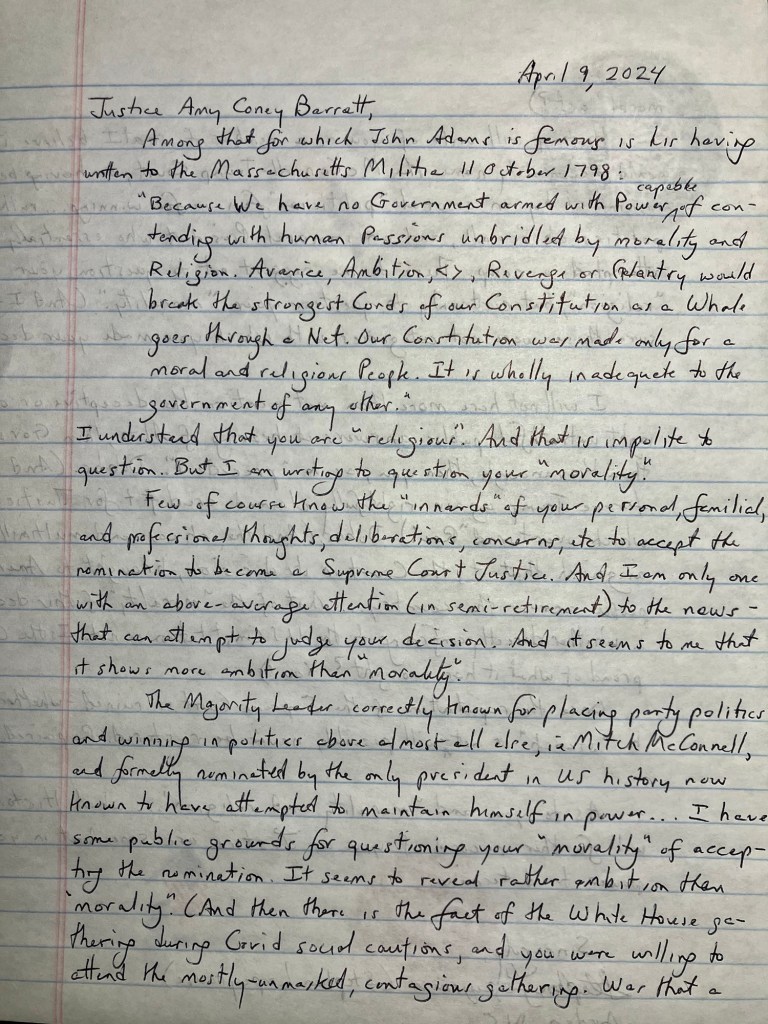 April 9, 2024
Justice Amy Coney Barratt,
Among that for which John Adams is famous is his having
written to the Massachusetts Militia 11 October 1798:
capable
"Because We have no Government armed with Power, of con-
tending with human Passions unbridled by morality and
Religion. Avarice, Ambition, <>, Revenge or Galantry would
break the strongest Cords of our Constitution as a Whale
goes through a Net. Our Constitution was made only for a
moral and religious People. It is wholly inadequate to the
government of any other."
I understand that you are "religious". And that is impolite to
question. But I am writing to question your "morality."
Few of course know the "innards" of your personal, familial,
and professional thoughts, deliberations, concerns, etc to accept the
nomination to become a Supreme Court Justice. And I am only one
with an above-average attention (in semi-retirement) to the news -
that can attempt to judge your decision. And it seems to me that
it shows more ambition than "morality".
The Majority Leader correctly known for placing party politics
and winning in politics above almost all else, ie Mitch McConnell,
and formally nominated by the only president in US history now
known to have attempted to maintain himself in power... I have
some public grounds for questioning your "morality" of accep-
ting the nomination. It seems to reveal rather ambition than
"morality". (And then there is the fact of the White House ga-
thering during Covid social cautions, and you were willing to
attend the mostly-unmasked, contagious gathering. Was that a